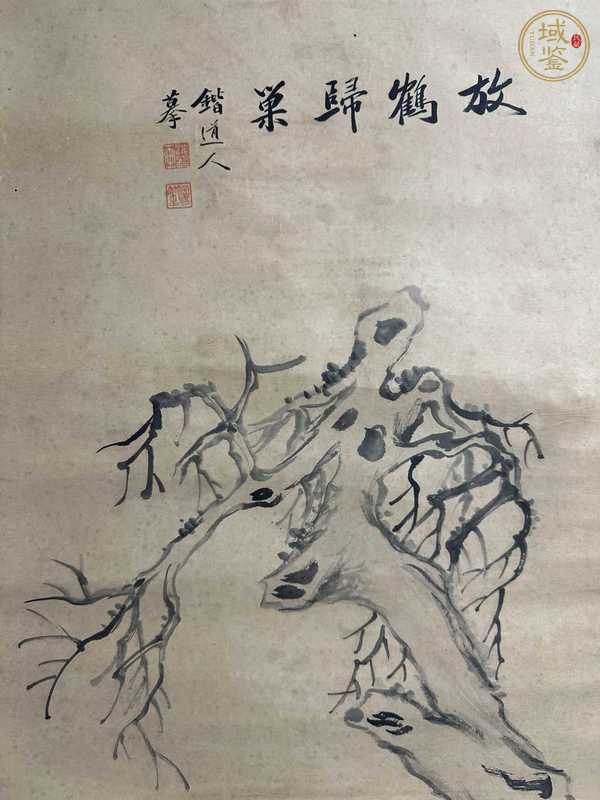 放鶴歸巢
鍇道人
摹
域鉴
YUJIAN